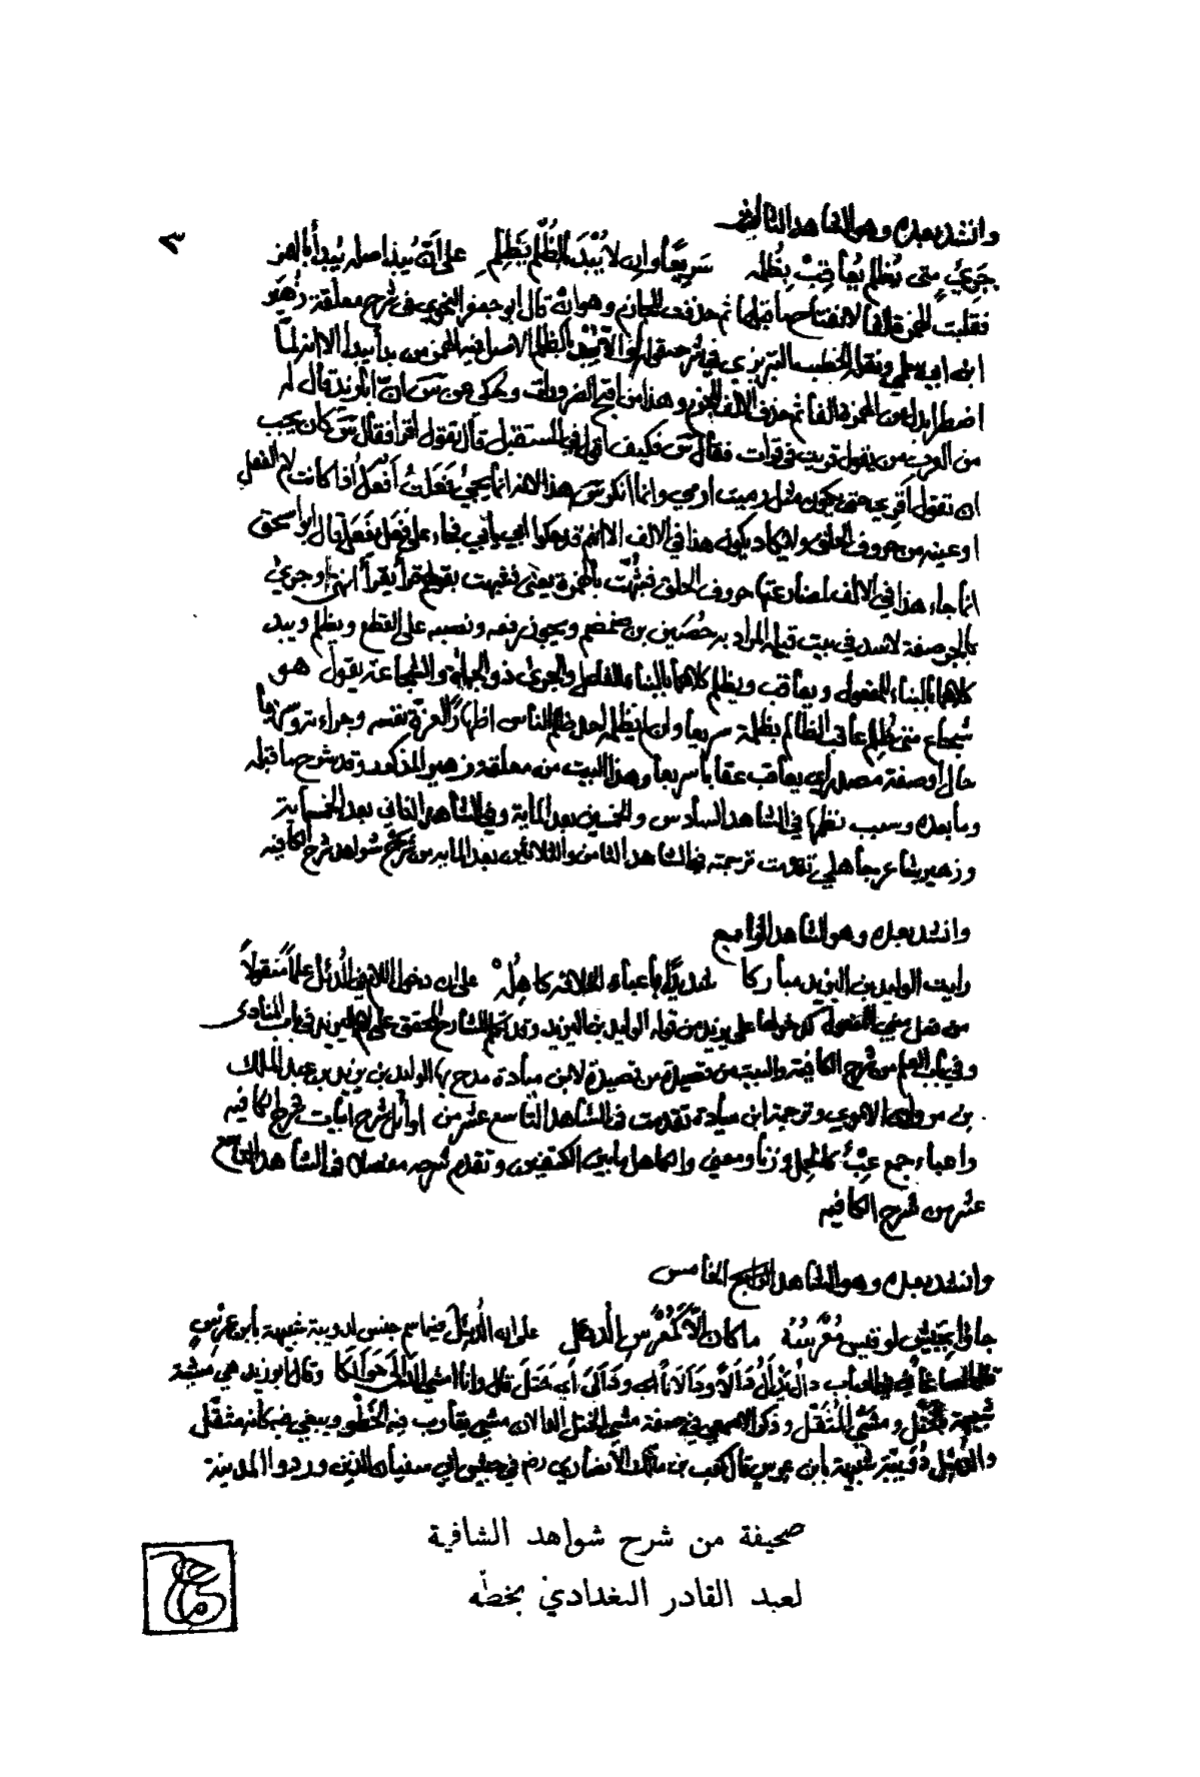 وانشد بعده وهو الشاهد الثالث
٣
جَرِيٍّ متى يُظلم يُعاقِبْ بِظُلمه سَرِيعًا وان لا يُبْدَ بالظُلْم يَظلِمِ على أنّ يُبدَ اصله يُبدأ بالهمز
فقلبت الهمزة الفا لانفتاح ما قبلها ثم حذفت للجازم وهو ان قال ابو جعفر النحوي في شرح معلقة زهير
ابن ابي سلمى ونقله الخطيب التبريزي في شرحه قوله والا يُبْدَ بالظلم الاصل فيه الهمز من بدأ يبدأ الا انه لمّا
اضطر ابدل من الهمزة الفا ثم حذف الالف للجزم وهذا من اقبح الضرورات ويحكى عن سَ انّ ابا زيد قال له
من العرب من يقول قريت في قرات فقال سَ فكيف اقول في المستقبل قال تقول اقرا فقال سَ كان يجب
ان تقول اقرِي حتى يكون مثل رميت ارمي وانما انكر سَ هذا لانه انما يجئ فَعَلتُ اَفْعَلُ اذا كانت لام الفعل
او عينه من حروف الحلق ولا يكاد يكون هذا في الالف الا انهم قد حكوا ابى يأبى فجاء على فَعَل يَفعَل قال ابو اسحق
انما جاء هذا في الالف لمضارعتها حروف الحلق فشُبّهت بالهمزة يعني فشبهت بقولهم قرأ يقرأ انتهى وجريٍ
بالجر صفة لاسد في بيت قبله المراد به حُصَين بن ضمضم ويجوز رفعه ونصبه على القطع ويظلم ويبد
كلاهما بالبناء للمفعول ويعاقب ويظلم كلاهما بالبناء للفاعل والجريّ ذو الجراة والشجاعة يقول هو
شجاع متى ظُلم عاقب الظالم بظلمه سريعا وان لم يظلمه احد ظلم الناس اظهارًا لعزة نفسه وجراءته وسريعا
حال او صفة مصدر اي يعاقب عقابا سريعا وهذا البيت من معلقة زهير المذكور وقد شرح ما قبله
وما بعده وسبب نظمها في الشاهد السادس والخمسين بعد المأية وفي الشاهد الثاني بعد الخمسماية
وزهير شاعر جاهلي تقدمت ترجمته في الشاهد الثامن والثلاثين بعد الماية من شرح شواهد شرح الكافيه
وانشد بعده وهو الشاهد الرابع
رايت الوليد بن اليزيد مباركا شديدًا باعباء الخلافة كاهِلُهْ على ان دخول اللام في الدُئِل علمًا منقولاً
من فعل مبني للمفعول كدخولها على يزيد من قوله الوليد بن اليزيد وقد تكلم الشارح المحقق على لام اليزيد في باب المنادى
وفي باب العلم من شرح الكافية والبيت من قصيدة لابن ميادة مدح بها الوليد بن يزيد بن عبد الملك
بن مروان الاموي وترجمة ابن ميادة تقدمت في الشاهد التاسع عشر من اوائل شرح ابيات شرح الكافيه
واعباء جمع عِبْءٍ كالحِمل وزنا ومعنى والكاهل ما بين الكتفين وتقدم شرحه مفصلا في الشاهد التاسع
عشر من شرح الكافيه
وانشد بعده وهو الشاهد الخامس
جاؤا بجَيْشٍ لو قيس مُعْرَسُهُ ما كان الّا كمُعْرَسِ الدئل على ان الدُئِل فيهما اسم جنس لدويبة شبيهة بابن عِرْسٍ
قال الصاغاني في العباب دال يَدْأَلُ دَأْلاً ودَأَلاناً ودَأَلَى اَي خَتَلَ قال وانا امشي الدَأَلَى حَوالَكا وقال ابو زيد هي مِشْيَة
شبيهة بالخَتْل ومَشْيِ المُثْقَل وذكر الاصمعي في صفة مشي الخيل الدالان مشي يقارب فيه الخَطْو ويبغي فيه كانه مُثْقَل
والدُئِل دُوَيْبّة شبيهة بابن عرس قال كعب بن مالك الانصاري رضه في جيش ابي سفيان الذين وردوا المدينة
صحيفة من شرح شواهد الشافية
لعبد القادر البغدادي بخطّه